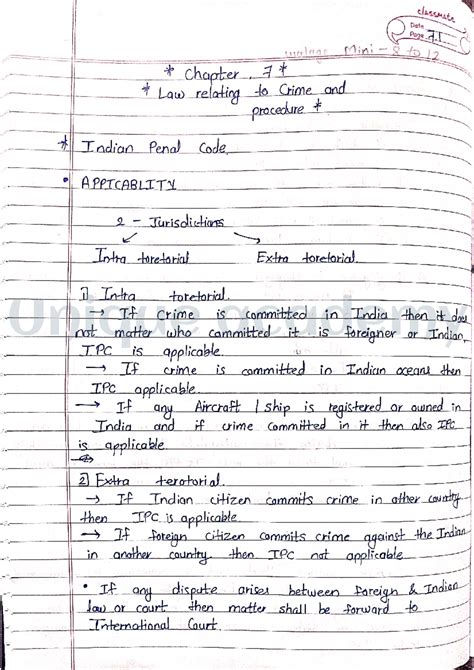 classmate
Date
Page 7.1
Mini - 8 to 12
* Chapter. 7 *
* Law relating to Crime and
procedure *
* Indian Penal Code.
• APPICABLITY
2 - Jurisdictions
Intra toretorial Extra toretorial.
1) Intra toretorial.
→ If crime is committed in India then it does
not matter who committed it is foreigner or Indian,
IPC is applicable.
→ If crime is committed in Indian oceans then
IPC applicable.
→ If any Aircraft / ship is registered or owned in
India and if crime committed in it then also IPC
is applicable.
2) Extra terotorial.
→ If Indian citizen commits crime in other country
then IPC is applicable.
→ If foreign citizen commits crime against the Indian
in another country then IPC not applicable.
• If any dispute arises between foreign & Indian
law or court then matter shall be forward to
International Court.
Unique academy